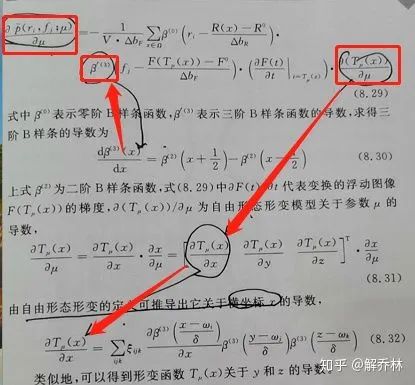 ∂ p̄(r_i, f_j; μ) / ∂μ = − 1 / (V · Δb_F) ∑_{x∈Ω} β^{(0)} (r_i − (R(x) − R⁰) / Δb_R) ·
β'^{(3)} (f_j − (F(T_μ(x)) − F⁰) / Δb_F) · (∂F(t)/∂t |_{t=T_μ(x)}) · ∂(T_μ(x)) / ∂μ
(8.29)
式中 β^{(0)} 表示零阶 B 样条函数, β'^{(3)} 表示三阶 B 样条函数的导数, 求得三
阶 B 样条的导数为
dβ^{(3)}(x) / dx = β^{(2)} (x + 1/2) − β^{(2)} (x − 1/2) (8.30)
上式 β^{(2)} 为二阶 B 样条函数, 式(8.29)中 ∂F(t)/∂t 代表变换的浮动图像
F(T_μ(x)) 的梯度, ∂(T_μ(x))/∂μ 为自由形态形变模型关于参数 μ 的
导数,
∂T_μ(x)/∂μ = ∂T_μ(x)/∂x · ∂x/∂μ = [∂T_μ(x)/∂x ∂T_μ(x)/∂y ∂T_μ(x)/∂z]^T · ∂x/∂μ
(8.31)
由自由形态形变的定义可推导出它关于横坐标 x 的导数,
∂T_μ(x)/∂x = ∑_{ijk} ξ_{ijk} ∂β^{(3)}((x − ω_i)/δ) / ∂x β^{(3)}((y − ω_j)/δ) β^{(3)}((z − ω_k)/δ) (8.32)
类似地, 可以得到形变函数 T_μ(x) 关于 y 和 z 的导数。
知乎 @解乔林